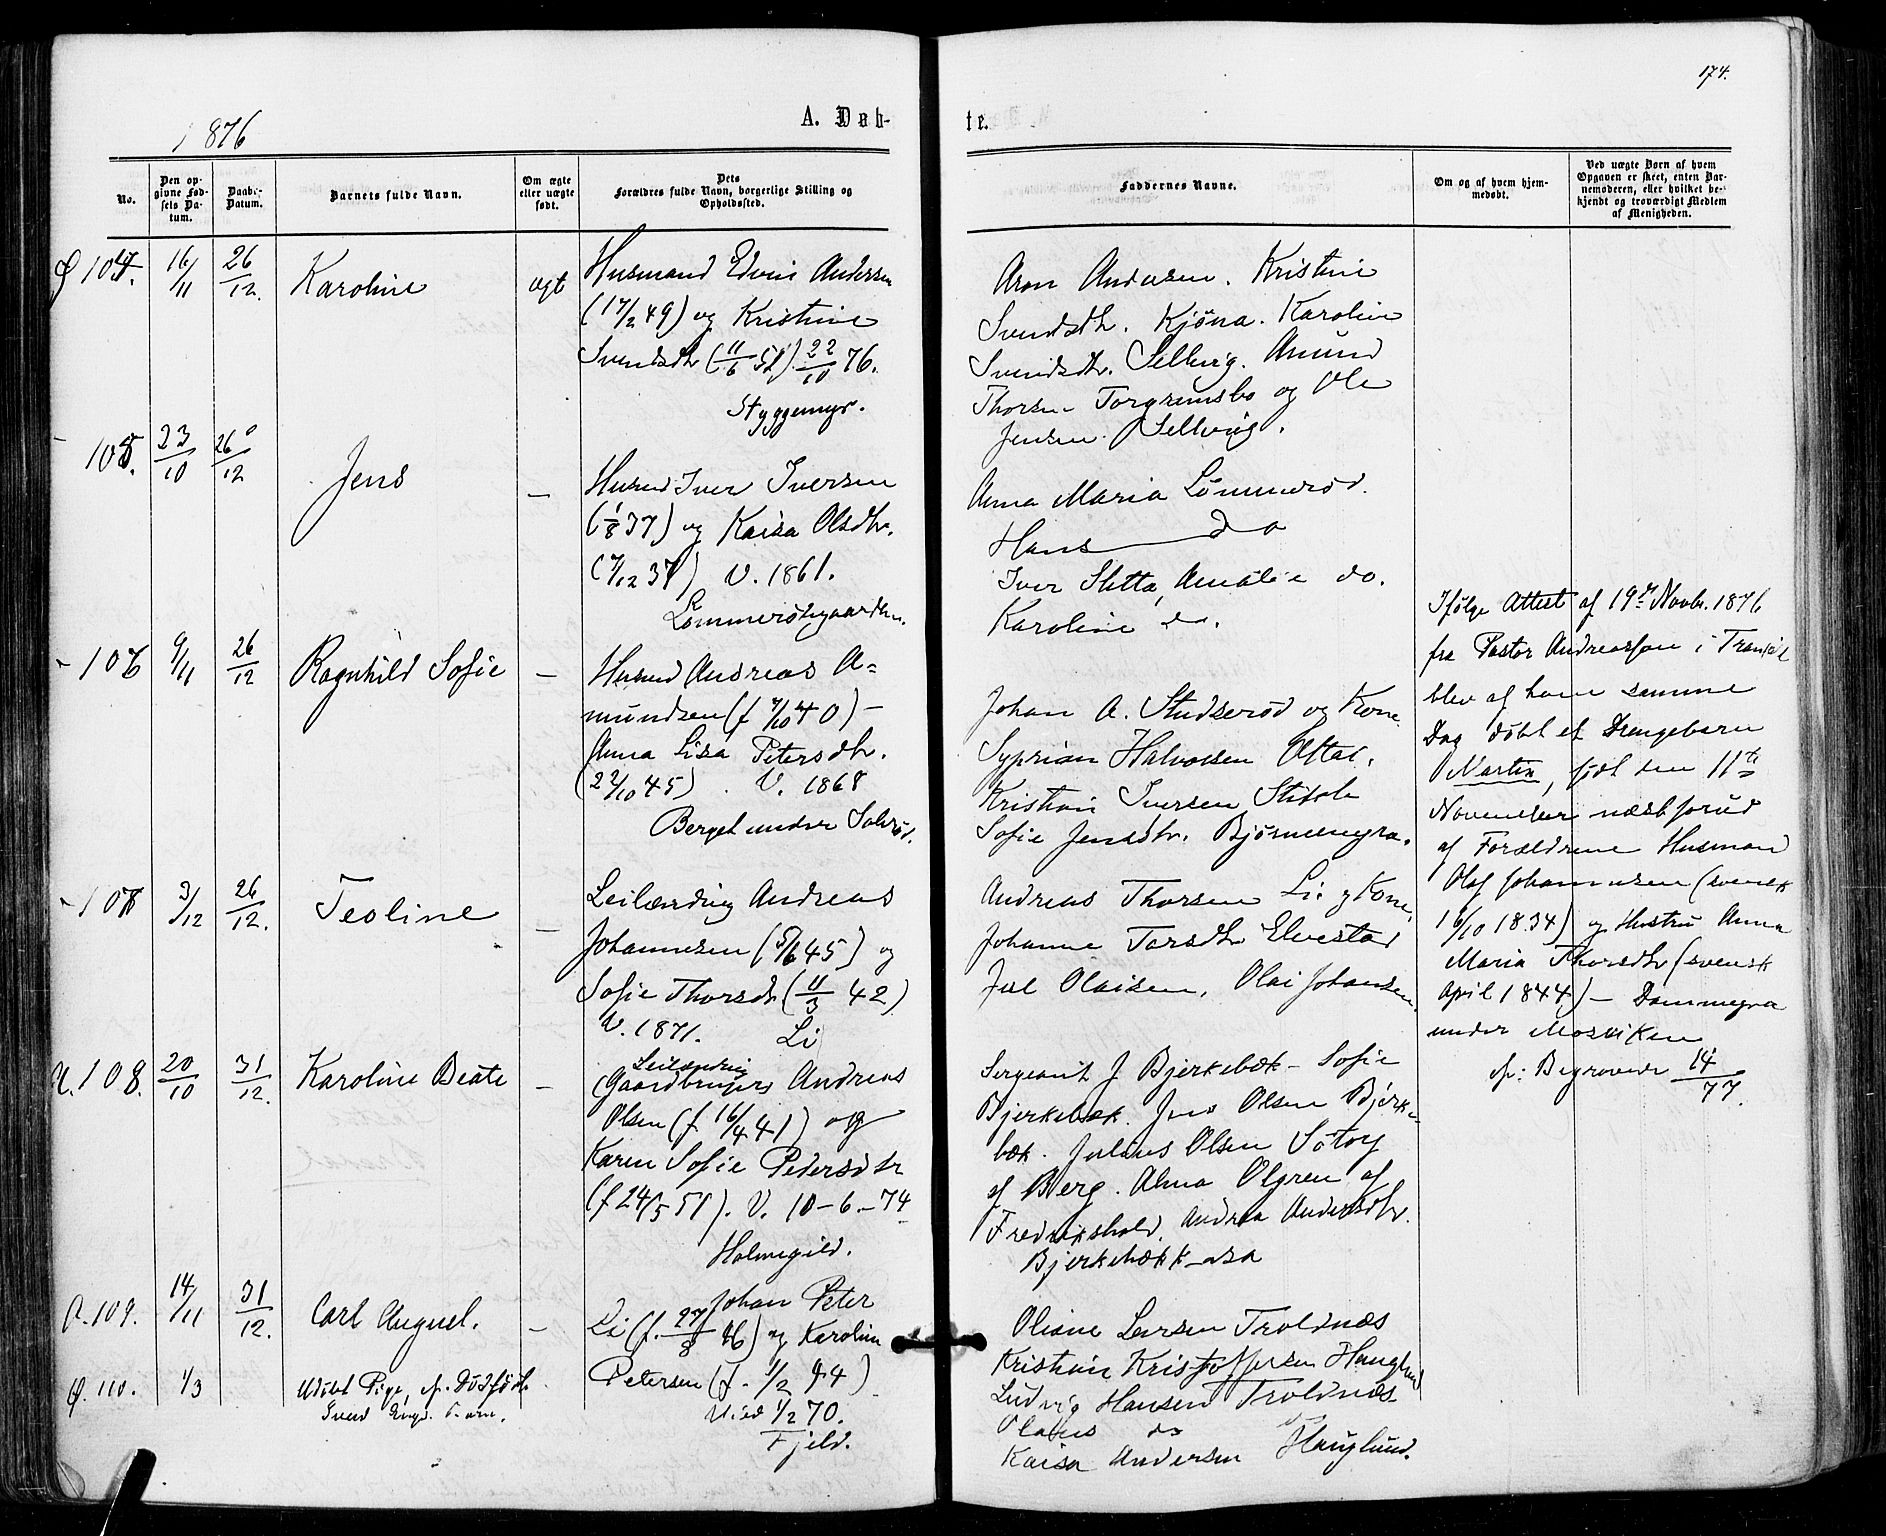 174.
1876
A. Døb-
te.
No.
Den op-
givne Fød-
sels Da-
tum.
Daabs-
Datum.
Barnets fulde Navn.
Om ægte
eller uægte
født.
Dets
Forældres fulde Navn, borgerlige Stilling og
Opholdssted.
Faddernes Navne.
Om og af hvem hjem-
medøbt.
Ved uægte Børn af hvem
Opgaven er skeet, enten Bar-
nemoderen, eller hvilket be-
kjendt og troværdigt Medlem
af Menigheden.
104. 16/11 26/12. Karoline ægt
Husmand Edvin Andersen
(17/2 49) og Kristine
Svendsdtr (11/6 51) 22/10 76.
Styggemyr.
Aron Andersen. Kristine
Svendsdtr. Kjøna. Karoline
Svendsdtr. Sellvig. Amund
Thorsen Torgrimsbo og Ole
Jensen Sellvig.
105. 23/10 26/12 Jens —
Husmd Iver Iversen
(1/8 37) og Kaisa Olsdtr.
(7/12 37) V. 1861.
Lømmerødegaarden.
Anna Maria Lømmerød.
Hans do
Iver Sletta, Amalie do.
Karoline do.
106 9/11 26/12 Ragnhild Sofie —
Husmd Andreas A-
mundsen (f 7/10 40) —
Anna Lisa Petersdtr.
(22/10 45). V. 1868
Berget under Solerød.
Johan A. Studserød og Kone
Syprian Halvorsen
Kristian Iversen
Sofie Jensdtr. Bjørnemyra.
107 3/12 26/12. Teoline —
Leilænding Andreas
Johannesen (5/6 45) og
Sofie Thorsdtr (11/3 42)
V. 1871. Li
Andreas Thorsen Li og Kone,
Johanne Torsdtr Elvestad
Juel Olaisen, Olai Johansen
108. 20/10 31/12. Karoline Beate —
Leilænding
Gaardbruger Andreas
Olsen (f 16/4 41) og
Karen Sofie Pedersdtr
(f 24/5 51). V. 10-6-74
Holmegild.
Sergeant J Bjerkebæk — Sofie
Bjerkebæk. Jens Olsen Bjerke-
bæk. Julius Olsen
af Berg. Alma Olgren af
Fredrikshald. Andrea Andersdtr.
Bjerkebækk—
109. 14/11 31/12. Carl August. —
Johan Peter
Li (f. 27/8 46) og Karoline
Petersen (f. 1/2 44)
Viet 1/2 70.
Fjeld.
Oliane Larsen Troldnæs
Kristian Kristoffersen Hauglund
Ludvig Hansen Troldnæs
Olaves do
Kaisa Andersen Hauglund.
110. 1/3 Udøbt Pige, cfr. Dødfødte
Svend Barn.
Ifølge Attest af 19de Novbr. 1876
fra Pastor Andreasson i
blev af ham samme
Dag døbt et Drengebarn
Martin, født den 11te
November næstforud
af Forældrene Husmand
Olaf Johannesen (svensk
16/10 1834) og Hustru Anna
Maria Thorsdtr (svensk
April 1844) — Dammyra
under Mosviken
cfr: Begravede 14/77.